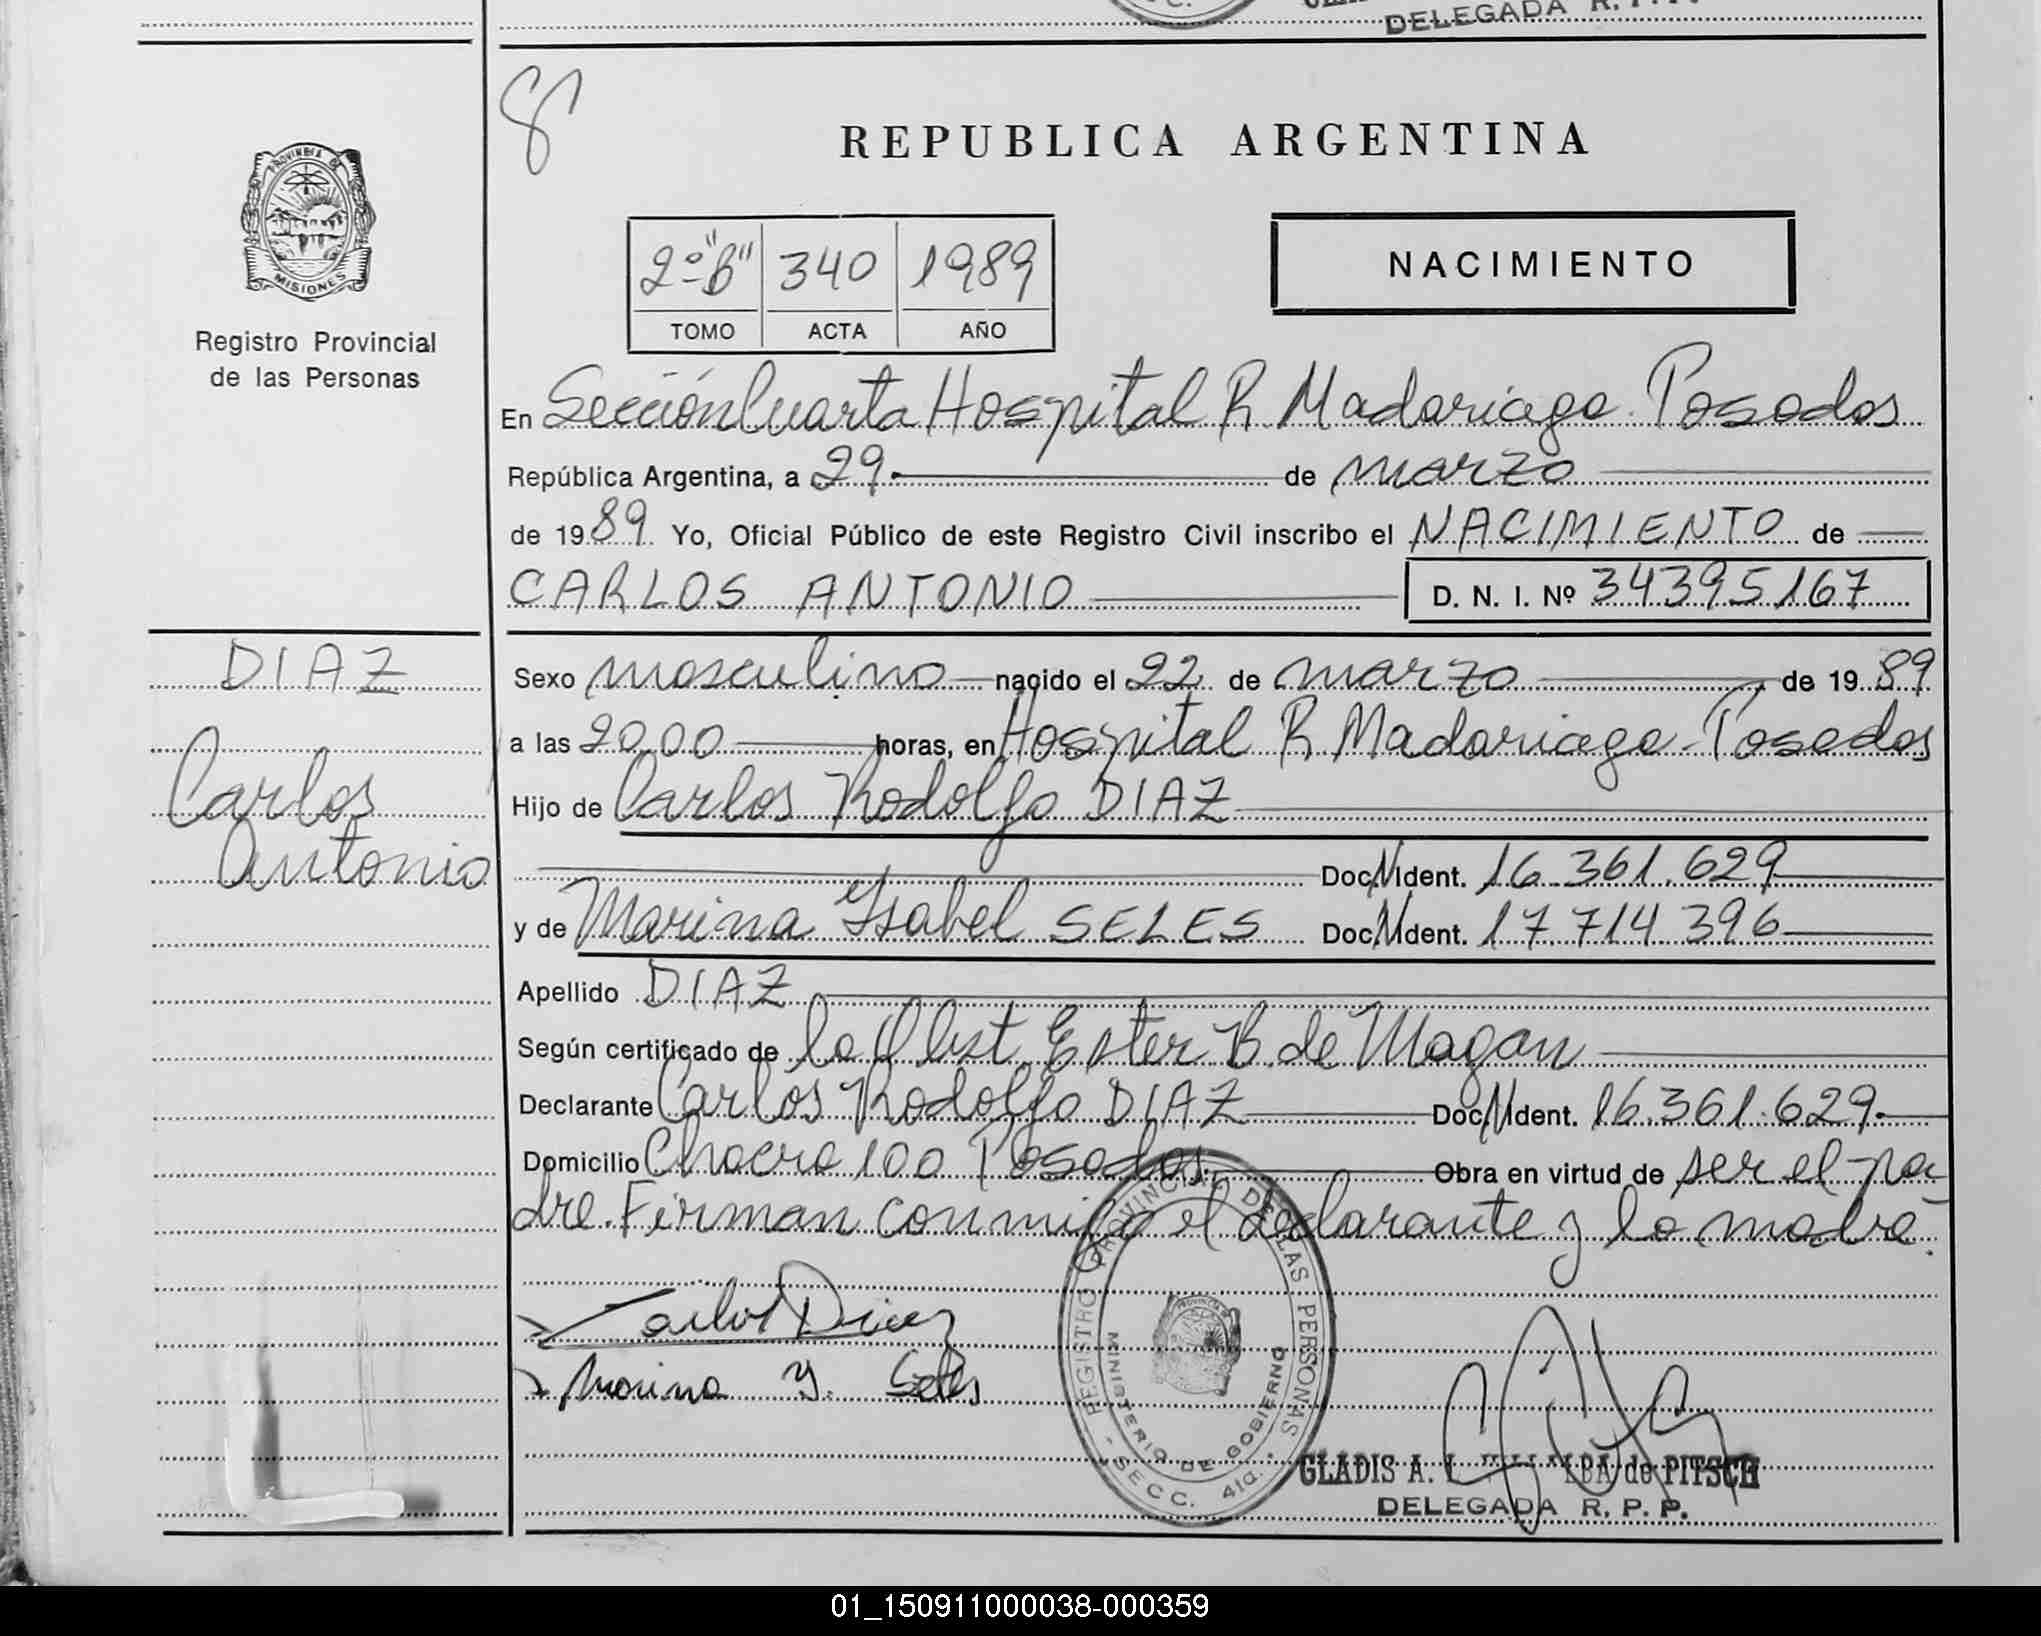 DELEGADA R. P. P.
8
REPUBLICA ARGENTINA
PROVINCIA DE
MISIONES
Registro Provincial
de las Personas
2º "B" 340 1989
TOMO ACTA AÑO
NACIMIENTO
En Sección Cuarta Hospital R. Madariaga. Posadas
República Argentina, a 29 de marzo
de 1989 Yo, Oficial Público de este Registro Civil inscribo el NACIMIENTO de
CARLOS ANTONIO D. N. I. Nº 34395167
DIAZ
Carlos
Antonio
Sexo masculino nacido el 22 de marzo de 1989
a las 20,00 horas, en Hospital R. Madariaga - Posadas
Hijo de Carlos Rodolfo DIAZ
Doc. N Ident. 16.361.629
y de Marina Ysabel SELES Doc. N Ident. 17.714.396
Apellido DIAZ
Según certificado de la Obst. Ester B. de Magan
Declarante Carlos Rodolfo DIAZ Doc. N Ident. 16.361.629
Domicilio Chacra 100 Posadas. Obra en virtud de ser el pa-
dre. Firman conmigo el declarante y la madre.
Carlos Diaz
Marina Y. Seles
REGISTRO PROVINCIAL DE LAS PERSONAS
MINISTERIO DE GOBIERNO
- SECC. 4ta. -
GLADIS A. de PITSCH
DELEGADA R. P. P.
01_150911000038-000359